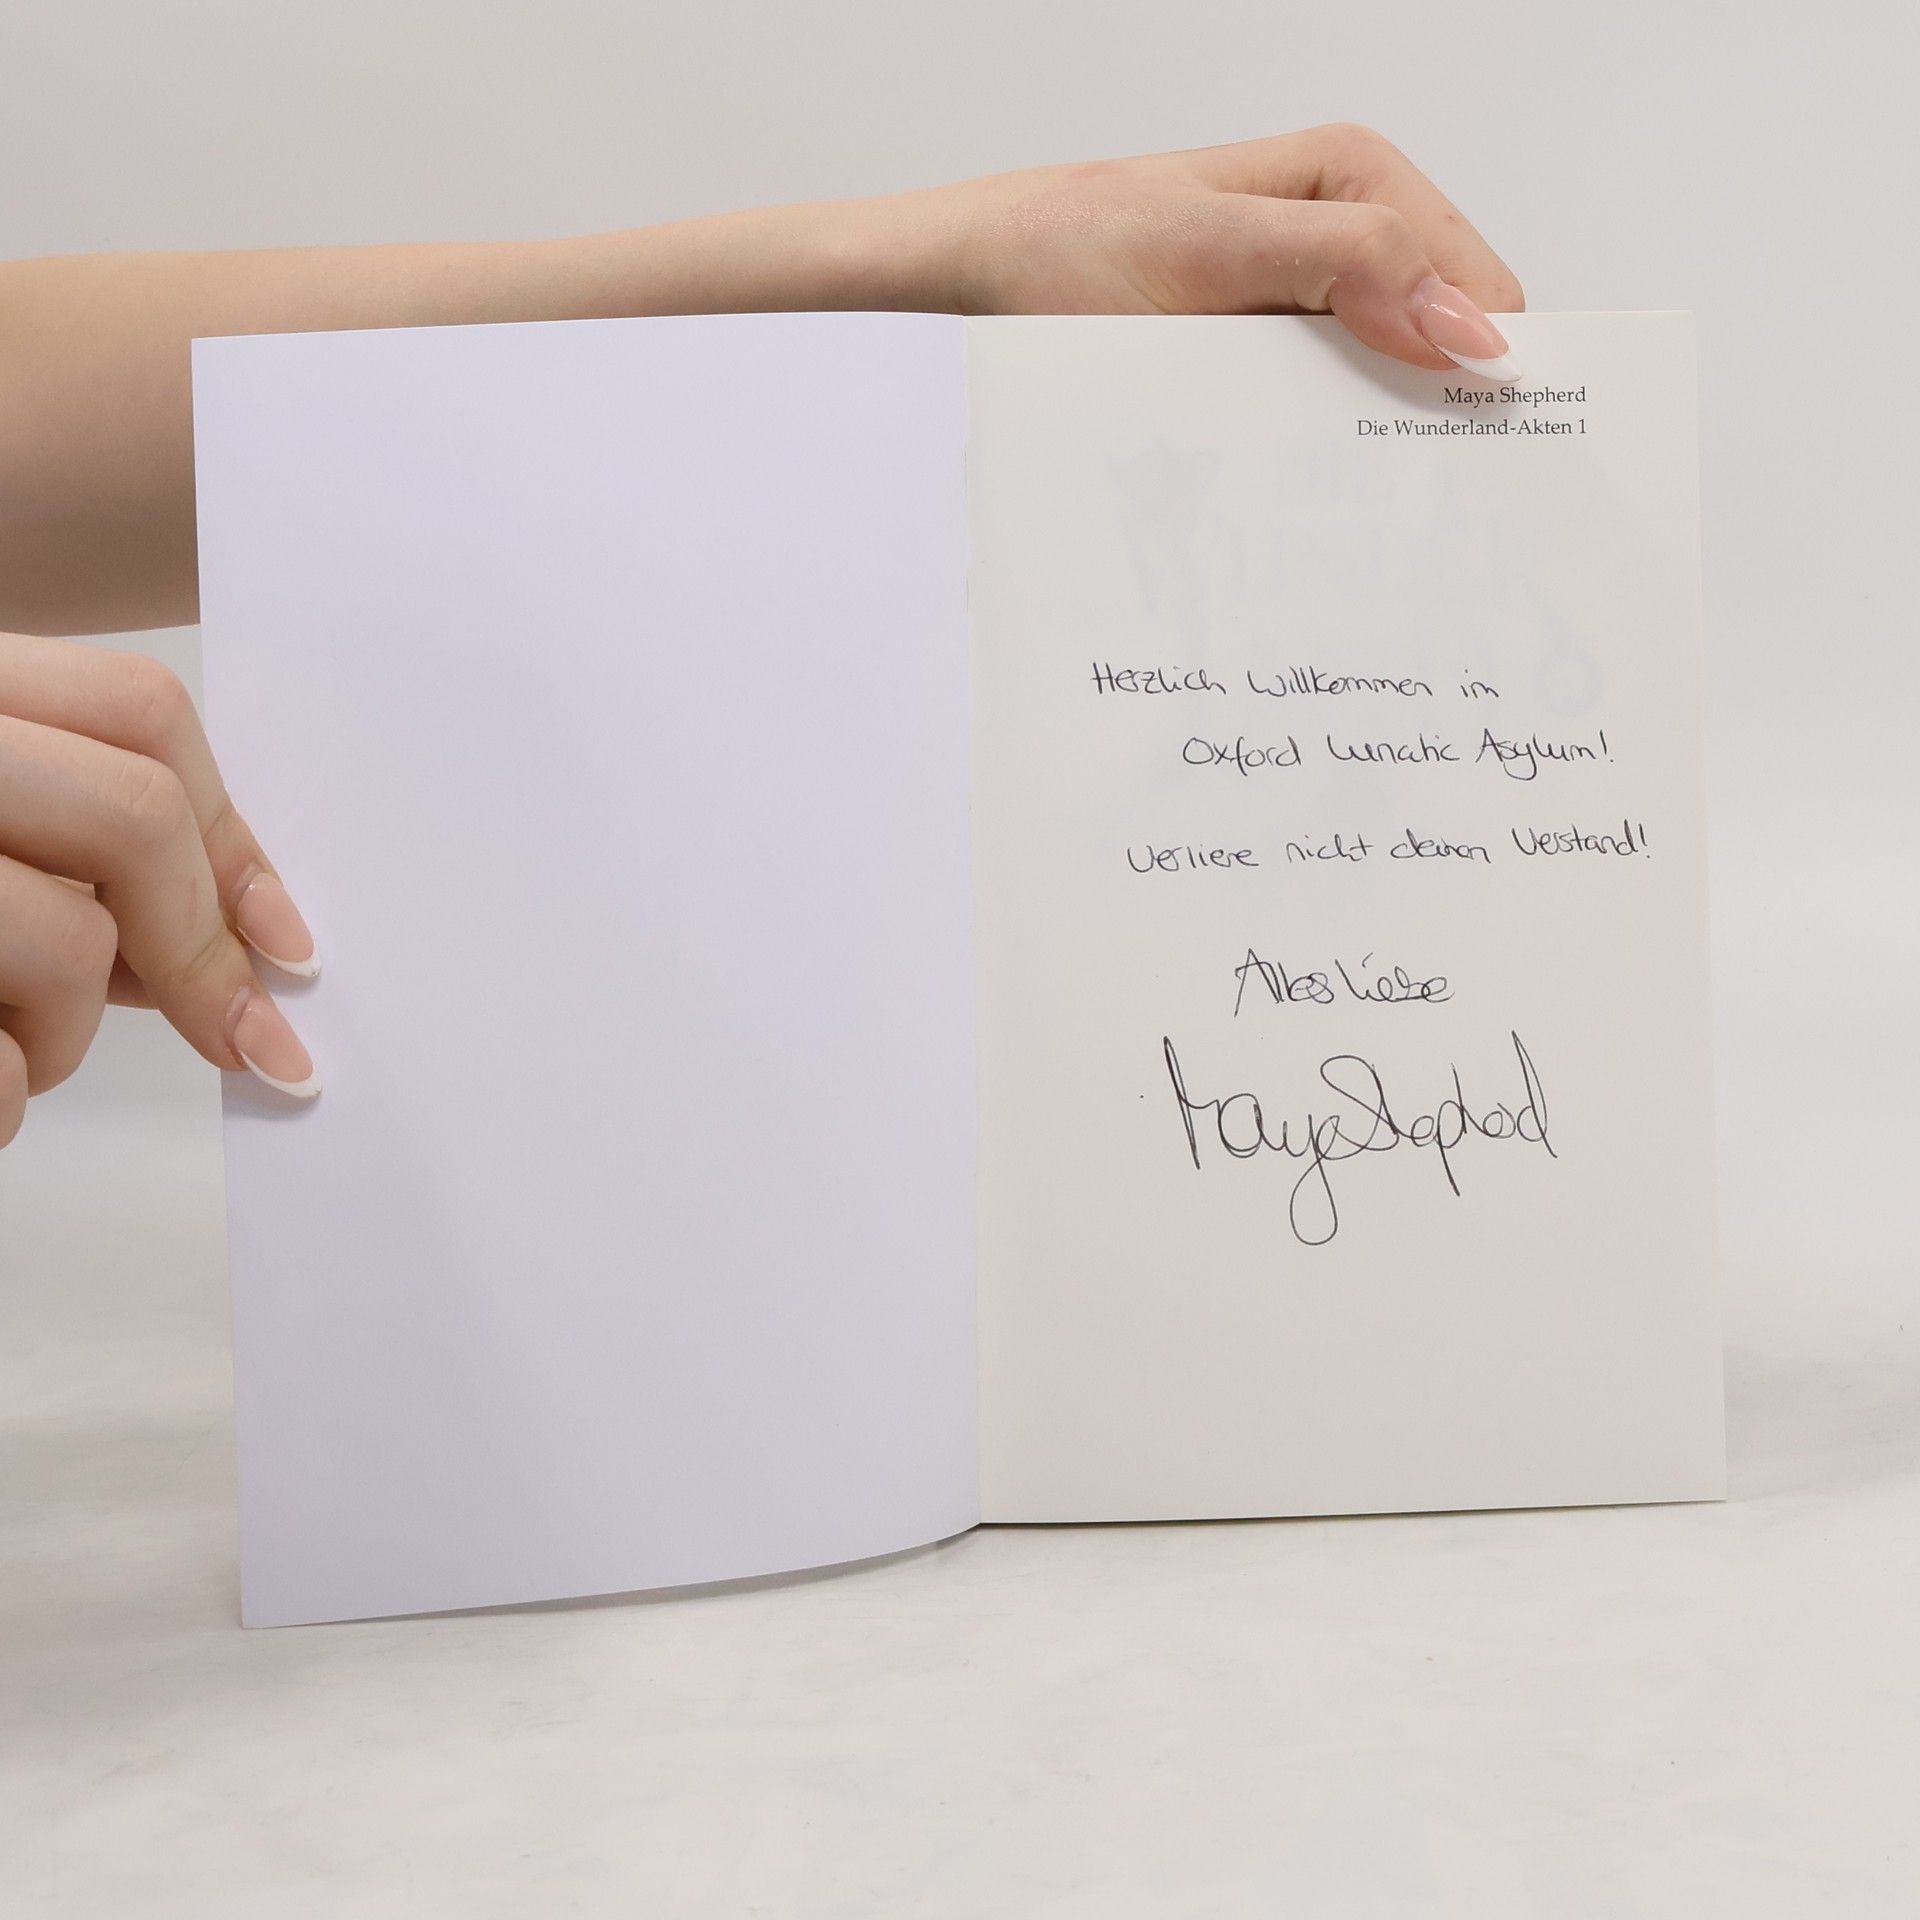 Maya Shepherd
Die Wunderland-Akten 1
Herzlich Willkommen im
Oxford Lunatic Asylum!
Verliere nicht deinen Verstand!
Alles Liebe
Maya Shepherd